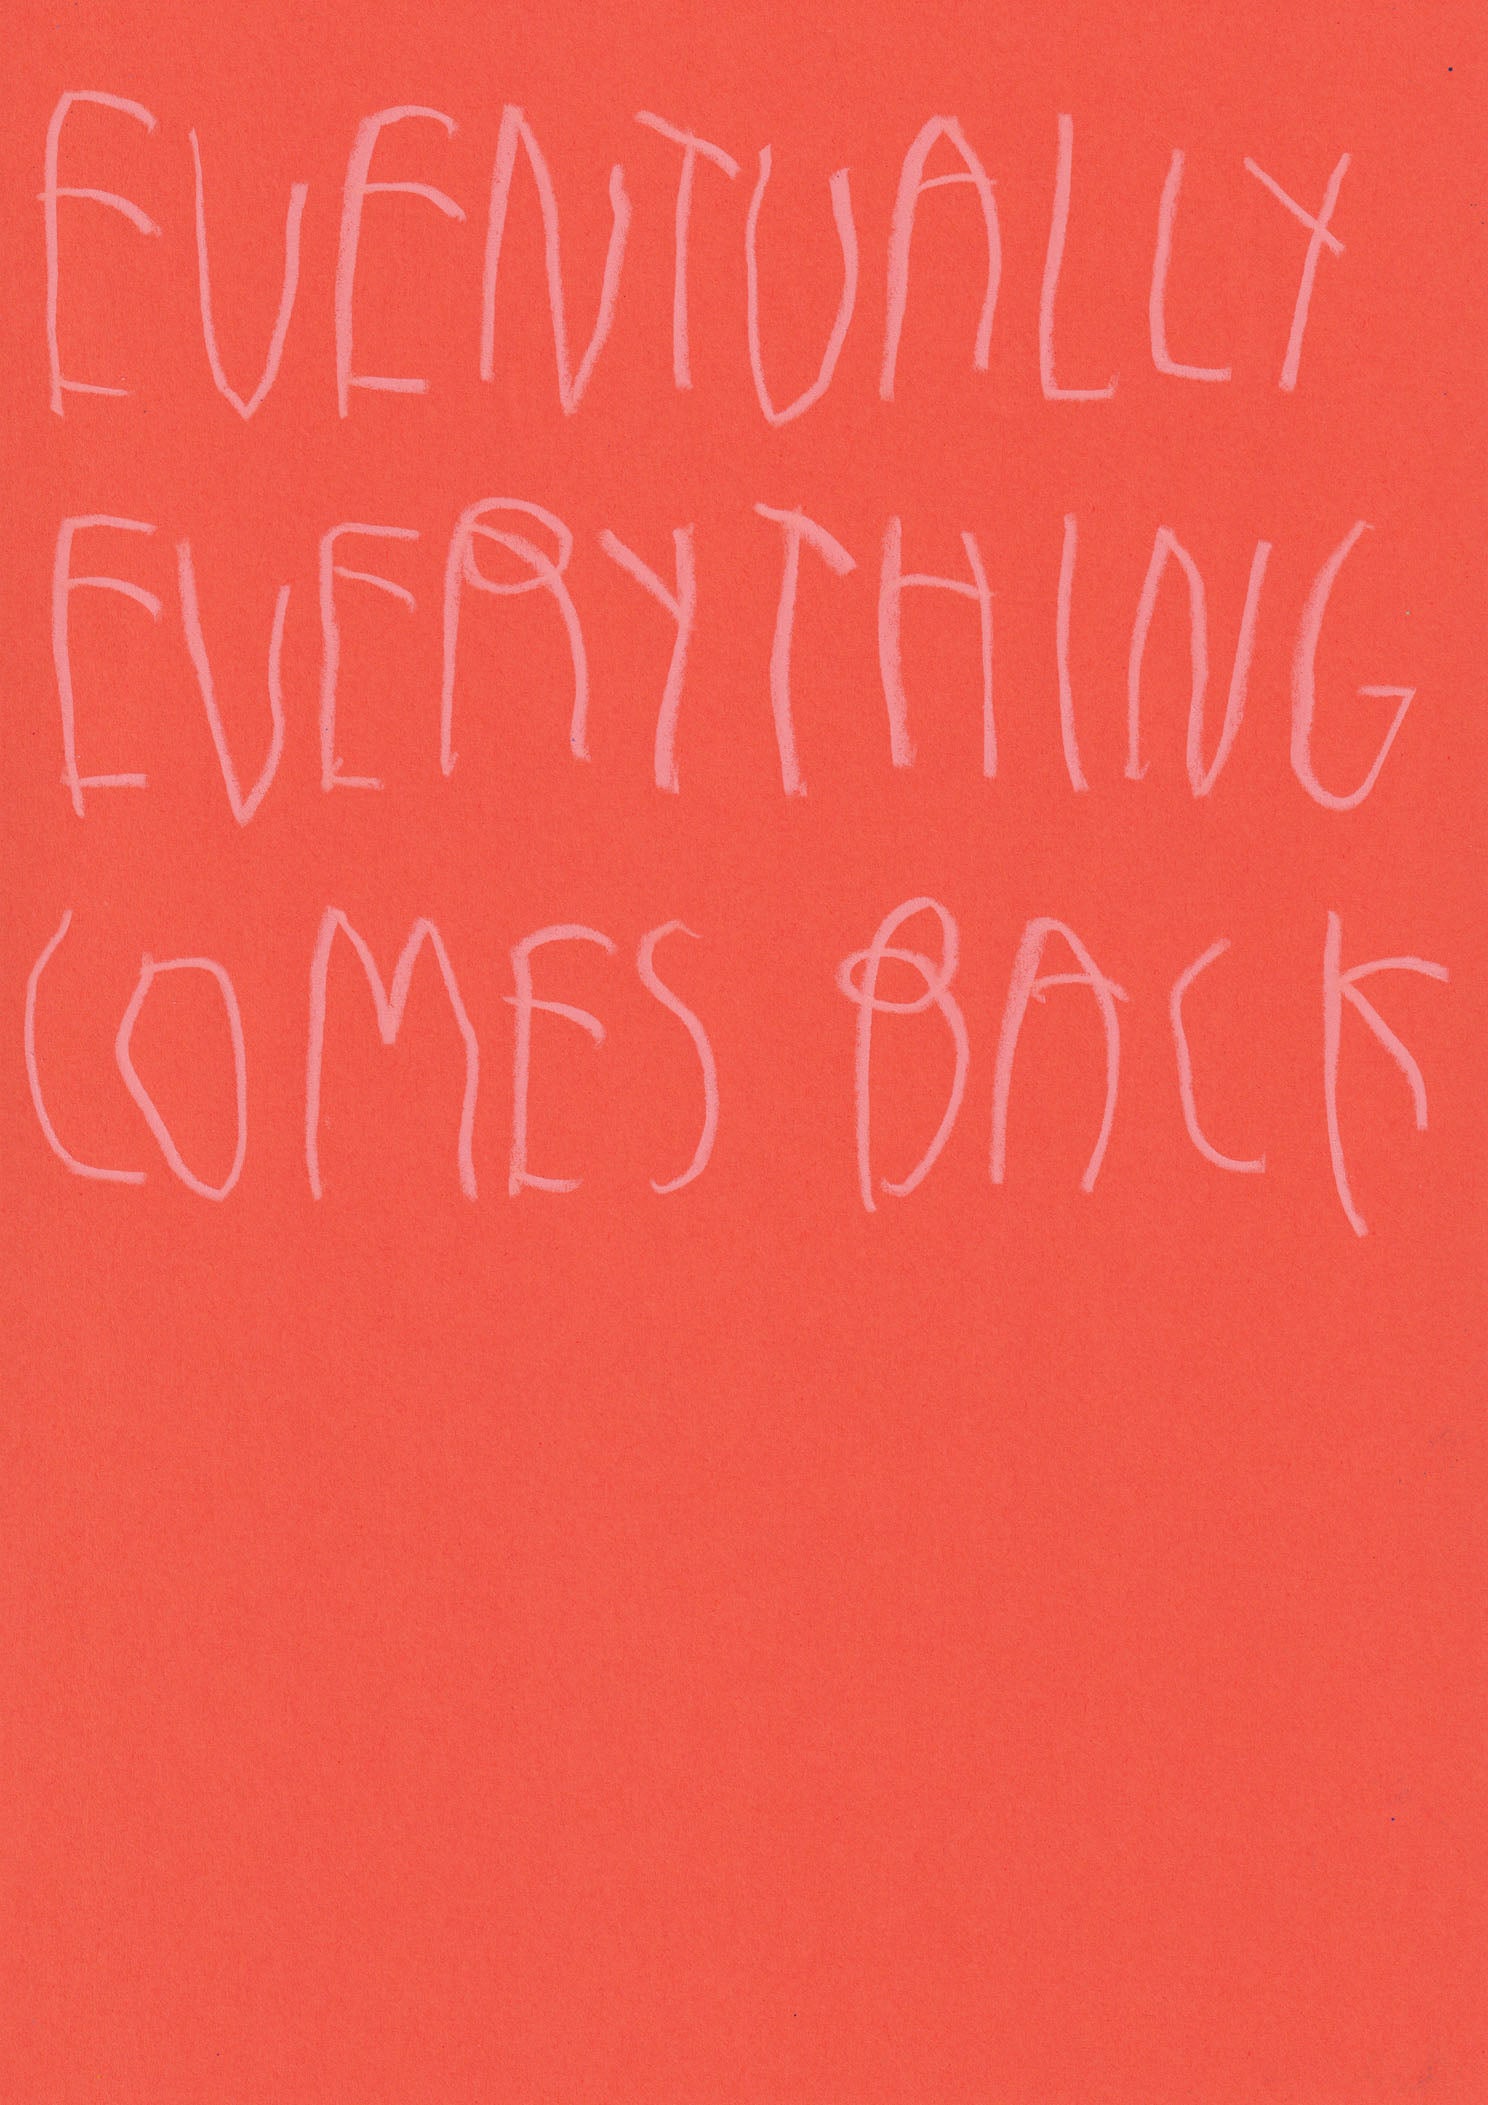 EVENTUALLY
EVERYTHING
COMES BACK